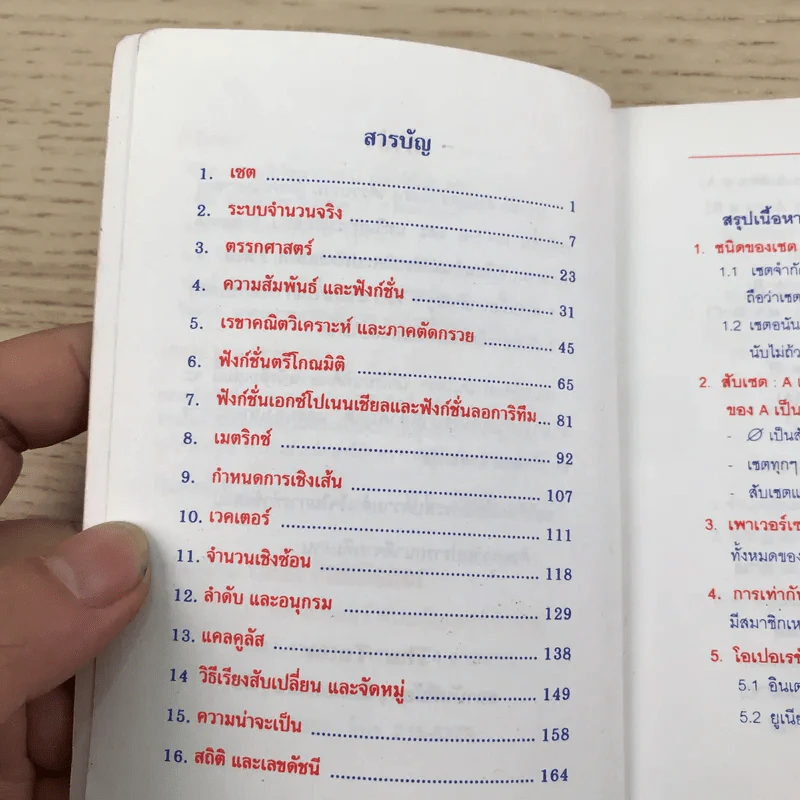 สารบัญ
1. เซต 1
2. ระบบจำนวนจริง 7
3. ตรรกศาสตร์ 23
4. ความสัมพันธ์ และฟังก์ชั่น 31
5. เรขาคณิตวิเคราะห์ และภาคตัดกรวย 45
6. ฟังก์ชั่นตรีโกณมิติ 65
7. ฟังก์ชั่นเอกซ์โปเนนเชียลและฟังก์ชั่นลอการิทึม... 81
8. เมตริกซ์ 92
9. กำหนดการเชิงเส้น 107
10. เวคเตอร์ 111
11. จำนวนเชิงซ้อน 118
12. ลำดับ และอนุกรม 129
13. แคลคูลัส 138
14 วิธีเรียงสับเปลี่ยน และจัดหมู่ 149
15. ความน่าจะเป็น 158
16. สถิติ และเลขดัชนี 164
สรุปเนื้อหา
1. ชนิดของเซต
1.1 เซตจำกั
ถือว่าเซต
1.2 เซตอนัน
นับไม่ถ้ว
2. สับเซต : A เ
ของ A เป็น
- Ø เป็นสั
- เซตทุกๆ
- สับเซตแ
3. เพาเวอร์เซ
ทั้งหมดของ
4. การเท่ากั
มีสมาชิกเห
5. โอเปอเรชั
5.1 อินเต
5.2 ยูเนีย